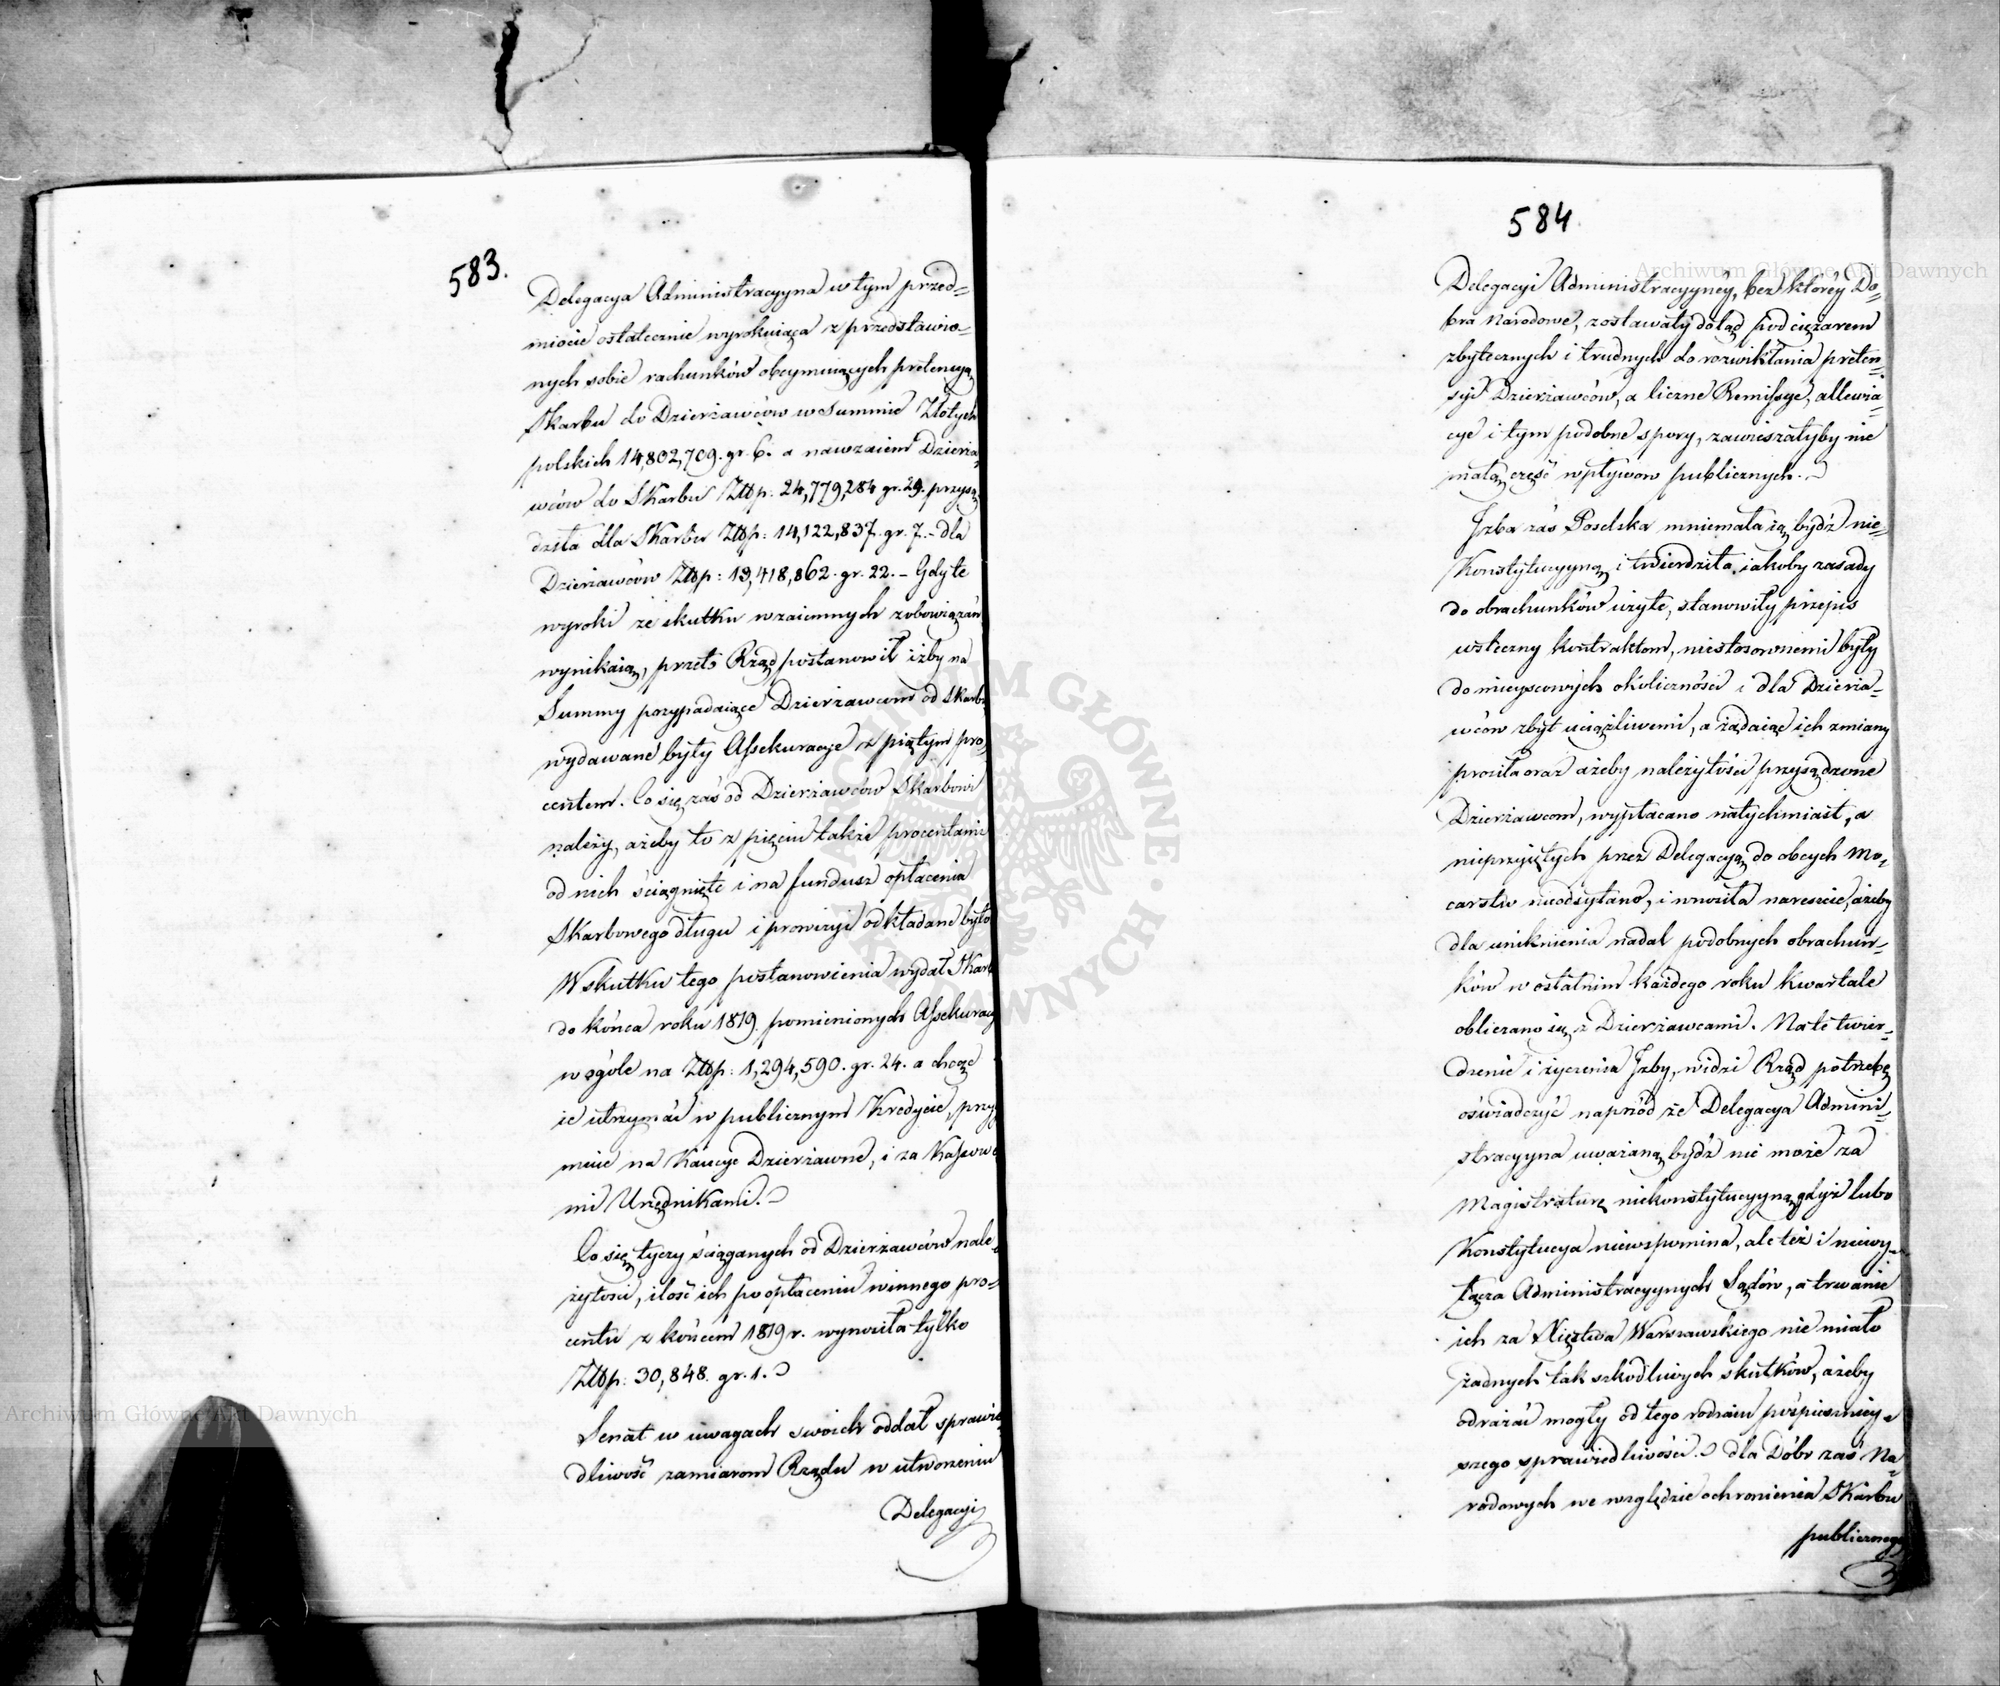 583.
Delegacya Administracyyna w tym przed=
miocie ostatecznie wyrokuiąca z przedstawio=
nych sobie rachunków obeymuiących pretensyą
Skarbu do Dzierżawców w Summie Złotych
polskich 14,802,709. gr. 6. a nawzaiem Dzierża
wców do Skarbu Złłp: 24,779,284 gr. 29. przysą
dziła dla Skarbu Złłp: 14,122,837. gr. 7. – dla
Dzierżawców Złłp: 13,418,862. gr. 22. – Gdy te
wyroki ze skutku wzaiemnych zobowiązań
wynikaią, przeto Rząd postanowił iżby na
Summy przypadaiące Dzierżawcom od Skarbu
wydawane były Assekuracye z piątym pro,
centem. Co się zaś od Dzierżawców Skarbowi
należy, ażeby to z pięciu także procentami
od nich ściągnięte i na fundusz opłacenia
Skarbowego długu i prowizyi odkładane było
W skutku tego postanowienia wydał Skarb
do końca roku 1819. pomienionych Assekuracy
w ogóle na Złłp: 1,294,590. gr. 24. a chcąc
ie utrzymać w publicznym Kredycie, przy
muie na Kaucye Dzierżawne, i za Kassowe
mi Urzędnikami.
Co się tyczy ściąganych od Dzierżawców nale=
żytości, ilość ich po opłaceniu winnego pro=
centu z końcem 1819 r. wynosiła tylko
Złłp: 30,848. gr. 1.
Senat w uwagach swoich oddał sprawie
dliwość zamiarom Rządu w utworzeniu
Delegacyi
584
Delegacyi Administracyyney, bez którey Do=
bra Narodowe, zostawały dotąd pod ciężarem
zbytecznych i trudnych do rozwikłania preten=
syi Dzierżawców, a liczne Remissye, allewia=
cye i tym podobne spory, zawieszałyby nie
małą część wpływow publicznych.
Jzba zaś Poselska mniemała ią bydź nie=
Konstytucyyną i twierdziła iakoby zasady
do obrachunków użyte, stanowiły przepis
wsteczny kontraktom, niestosownemi były
do mieyscowych okoliczności i dla Dzierża=
wców zbyt uciążliwemi, a żądaiąc ich zmiany
prosiła oraz ażeby należytości przysądzone
Dzierżawcom, wypłacano natychmiast, a
nieprzyiętych przez Delegacyą do obcych Mo=
carstw nieodsyłano, i wnosiła nareszcie, ażeby
dla uniknienia nadal podobnych obrachun=
ków w ostatnim każdego roku Kwartale
obliczano się z Dzierżawcami. Na te twier=
dzenie i życzenia Jzby, widzi Rząd potrzebę
oświadczyć naprzód że Delegacya Admini=
stracyyna uważaną bydź nie może za
Magistraturę niekonstytucyyną gdyż lubo
Konstytucya niewspomina, ale też i niewy=
łącza Administracyynych Sądów, a trwanie
ich za Xięstwa Warszawskiego nie miało
żadnych tak szkodliwych skutków, ażeby
odrażać mogły od tego rodzaiu pośpieszniey=
szego sprawiedliwości. dla Dóbr zaś Na=
rodowych we względzie ochronienia Skarbu
publicznego
Archiwum Główne Akt Dawnych
Archiwum Główne Akt Dawnych
ARCHIWUM GŁÓWNE AKT DAWNYCH